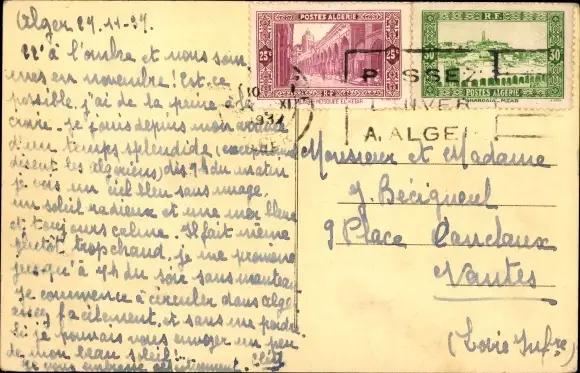 Alger 27.11.37.
22° à l'ombre et nous som
mes en novembre! Est-ce
possible, j'ai de la peine à le
croire. Je jouis depuis mon arrivée
d'un temps splendide (exceptionnel
disent les algériens) dès 7h du matin
je vois un ciel bleu sans nuage,
un soleil radieux et une mer bleue
et toujours calme. Il fait même
plutôt trop chaud, je me promène
jusqu'à 7h du soir sans manteau
Je commence à circuler dans Alger
assez facilement et sans me perdre
Si je pouvais vous envoyer un peu
de mon beau soleil!
Je vous embrasse affectueusement.
25c POSTES ALGERIE 25c
R.F.
MOSQUÉE EL-KEBIR
30c R.F. 30c
POSTES ALGERIE
GHARDAIA-MZAB
1937
PASSEZ
L'HIVER
A ALGER
Monsieur et Madame
J. Bécigneul
9 Place Canclaux
Nantes
(Loire Infre)